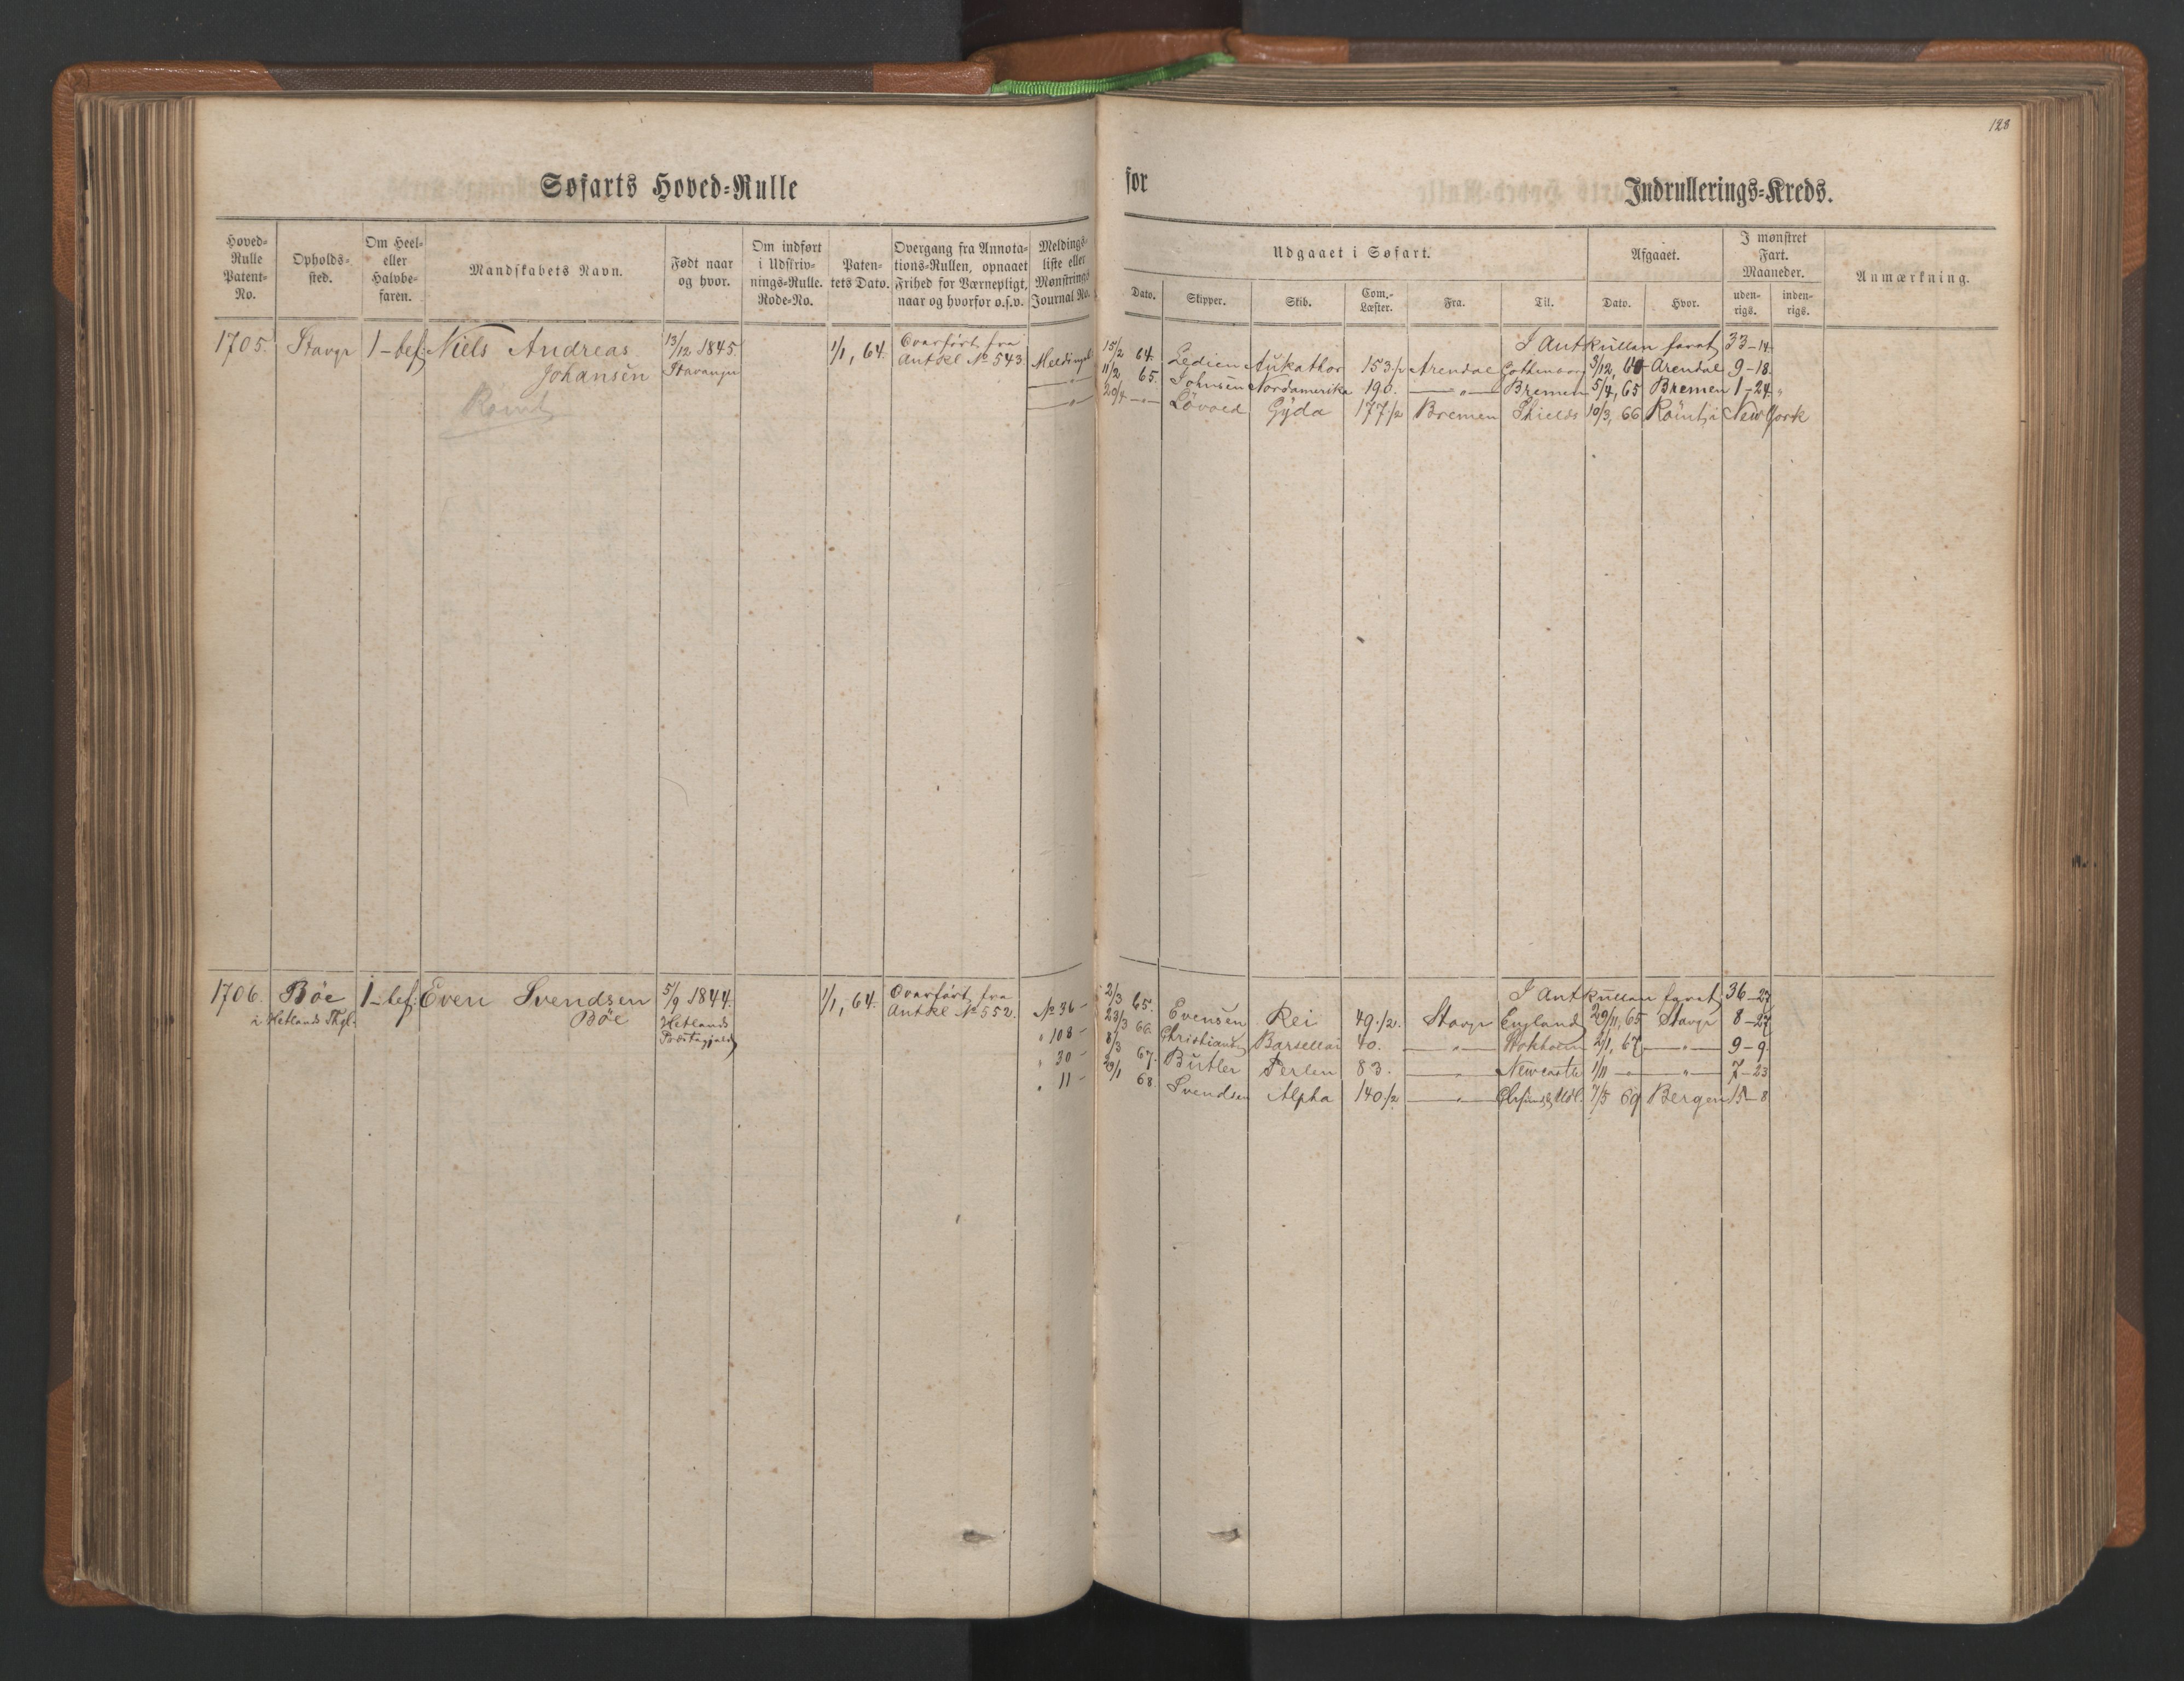 128
Søfarts Hoved=Rulle
for
Indrullerings=Kreds.
Hoved=Rulle Patent=No.
Opholds=sted.
Om Heel= eller Halvbe=faren.
Mandskabets Navn.
Født naar og hvor.
Om indført i Udskriv=nings=Rulle. Rode=No.
Paten=tets Dato.
Overgang fra Annota=tions=Rullen, opnaaet Frihed for Værnepligt, naar og hvorfor o.s.v.
Meldings=liste eller Mønstrings Journal No.
Udgaaet i Søfart.
Dato. Skipper. Skib. Com.=Læster. Fra. Til.
Afgaaet.
Dato. Hvor.
I mønstret Fart. Maaneder.
uden=rigs. inden=rigs.
Anmærkning.
1705. Stavgr 1-bef: Niels Andreas 13/12 1845. 1/1, 64. Overført fra
Johansen Stavanger Antkl No 543
Rømt
I Antkrullen faret 33-14
Meldingsl 15/2 64. Ledien Aukathor 153 1/2 Arendal Gottenborg 3/12, 64 Arendal 9-18
-"- 11/2 65. Johnsen Nordamerika 190. -"- Bremen 5/4, 65 Bremen 1-24 "
-"- 20/4 -"- Løvoed Gyda 177 1/2 Bremen Shields 10/3, 66 Rømt i New York
1706. Bøe 1-bef: Even Svendsen 5/9 1844. 1/1, 64. Overført fra
i Hetlands Thgl. Bøe Hetlands Antkl No 552.
Præstegjeld
I Antkrullen faret 36-27
No 36- 2/3 65. Evensen Rei 49 1/2. Stavgr England 29/11, 65 Stavgr 8-27
" 108- 23/3 66. Christiansen 40. -"- Stokholm 2/1, 67 -"- 9-9
" 30- 8/3 67. Butler Perlen 83. -"- Newcastle 1/11 -"- -"- 7-23
" 11- 29/1 68. Svendsen Alpha 140 1/2 -"- Udl. 7/5 69 Bergen 15-8